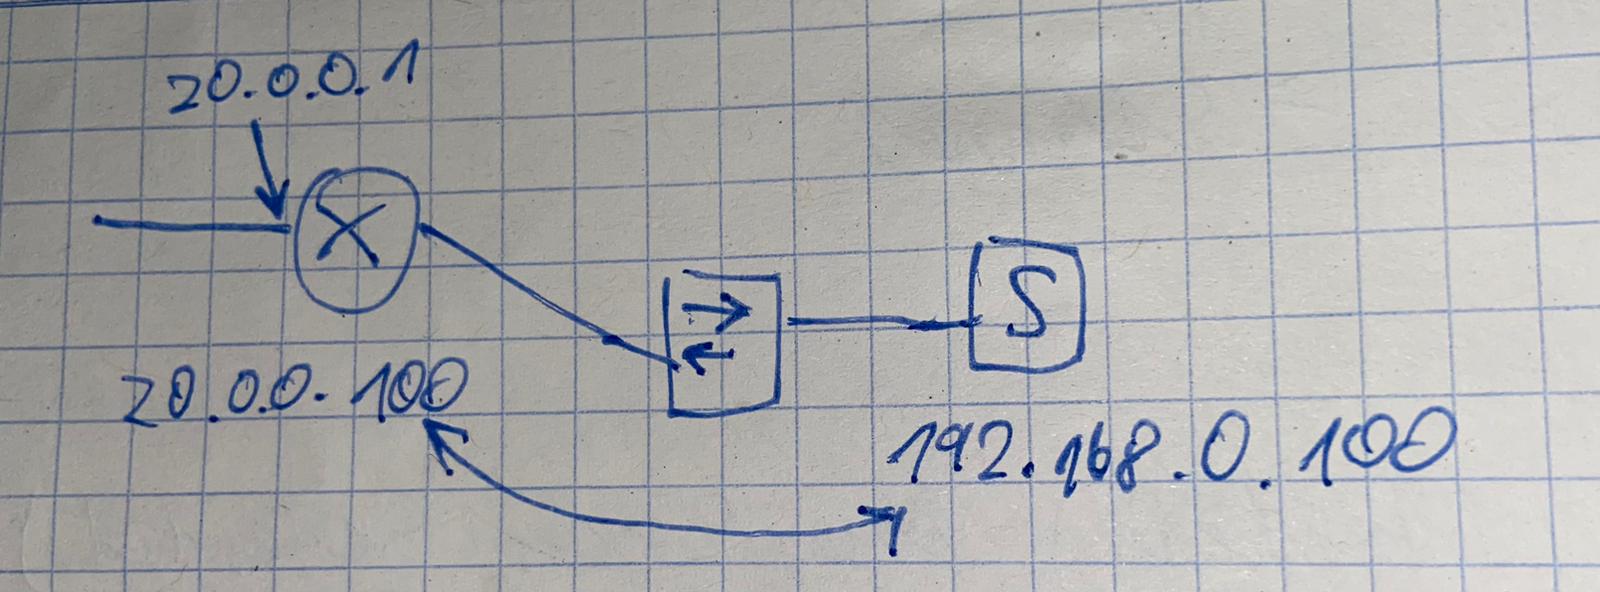 20.0.0.1
X
S
20.0.0.100
192.168.0.100